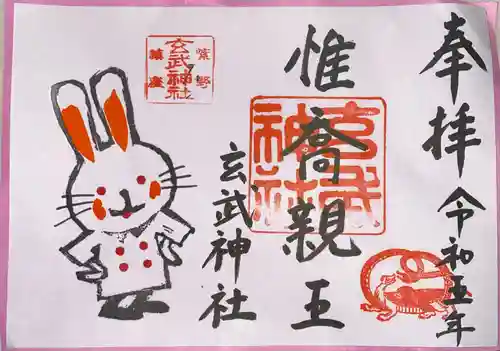 奉拝
令和五年
惟喬親王
玄武神社
玄武神社
紫野
玄武神社